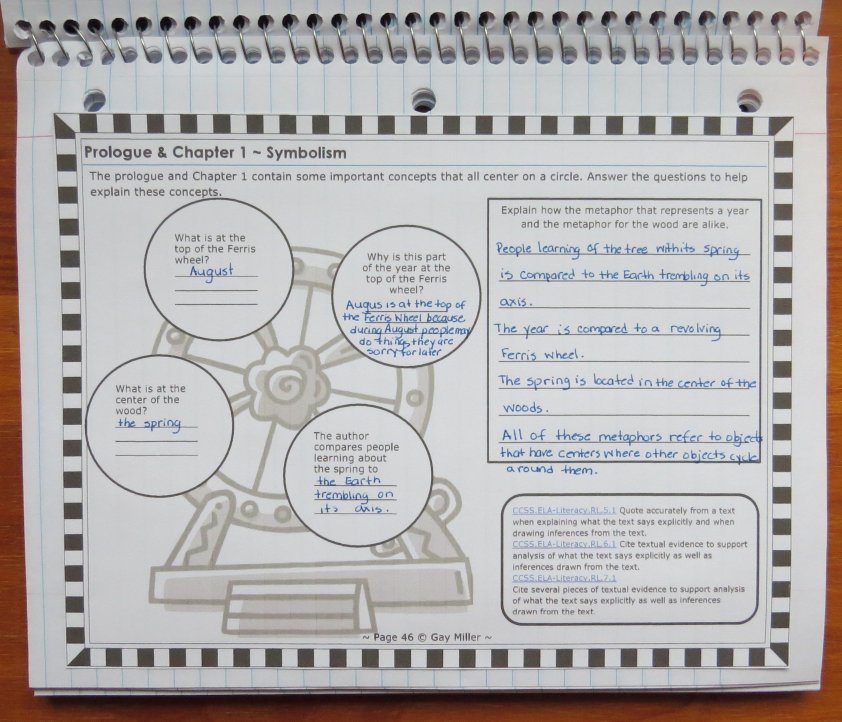 Prologue & Chapter 1 ~ Symbolism
The prologue and Chapter 1 contain some important concepts that all center on a circle. Answer the questions to help
explain these concepts.
What is at the
top of the Ferris
wheel?
August
Why is this part
of the year at the
top of the Ferris
wheel?
Augus is at the top of
the Ferris Wheel because
during August people may
do things they are
sorry for later
What is at the
center of the
wood?
the spring
The author
compares people
learning about
the spring to
the Earth
trembling on
its axis.
Explain how the metaphor that represents a year
and the metaphor for the wood are alike.
People learning of the tree with its spring
is compared to the Earth trembling on its
axis.
The year is compared to a revolving
Ferris wheel.
The spring is located in the center of the
woods.
All of these metaphors refer to objects
that have centers where other objects cycle
around them.
CCSS.ELA-Literacy.RL.5.1 Quote accurately from a text
when explaining what the text says explicitly and when
drawing inferences from the text.
CCSS.ELA-Literacy.RL.6.1 Cite textual evidence to support
analysis of what the text says explicitly as well as
inferences drawn from the text.
CCSS.ELA-Literacy.RL.7.1
Cite several pieces of textual evidence to support analysis
of what the text says explicitly as well as inferences
drawn from the text.
~ Page 46 © Gay Miller ~